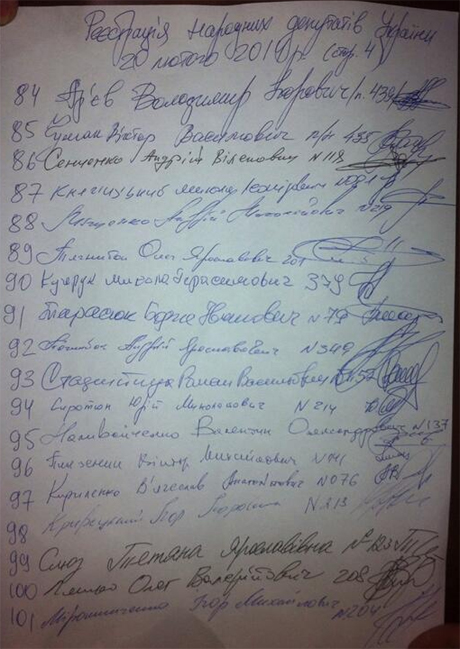 Реєстрація народних депутатів України
20 лютого 2014 р. (стр. 4)
84 Ар'єв Володимир Ігорович п. 439
85 Чумак Віктор Васильович п/н 435
86 Сенченко Андрій Віленович N 118
87 Княжицький Микола
88 Андрій
89 Тягнибок Олег Ярославович 201
90 Кучерук Микола Герасимович 379
91 Тарасюк Борис Іванович N 79
92 Андрій Ярославович N 349
93 Роман
94 Сиротюк Юрій Миколайович N 214
95 Наливайченко Валентин Олександрович N 137
96 Пинзеник Віктор Михайлович N 041
97 Кириленко В'ячеслав Анатолійович N 076
98 N 213
99 Тетяна Ярославівна N
100 Ляшко Олег Валерійович 208
101 Мірошниченко Ігор Михайлович N 204